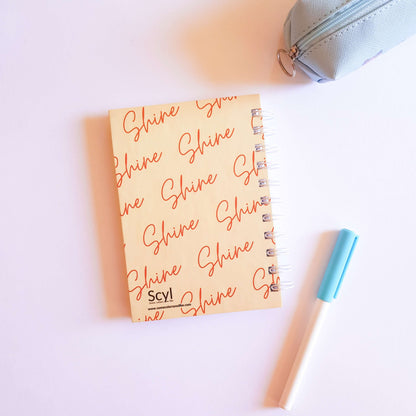 Shine
Shine
Shine
Shine
Shine
Shine
Shine
Shine
Shine
Shine
Shine
Scyl